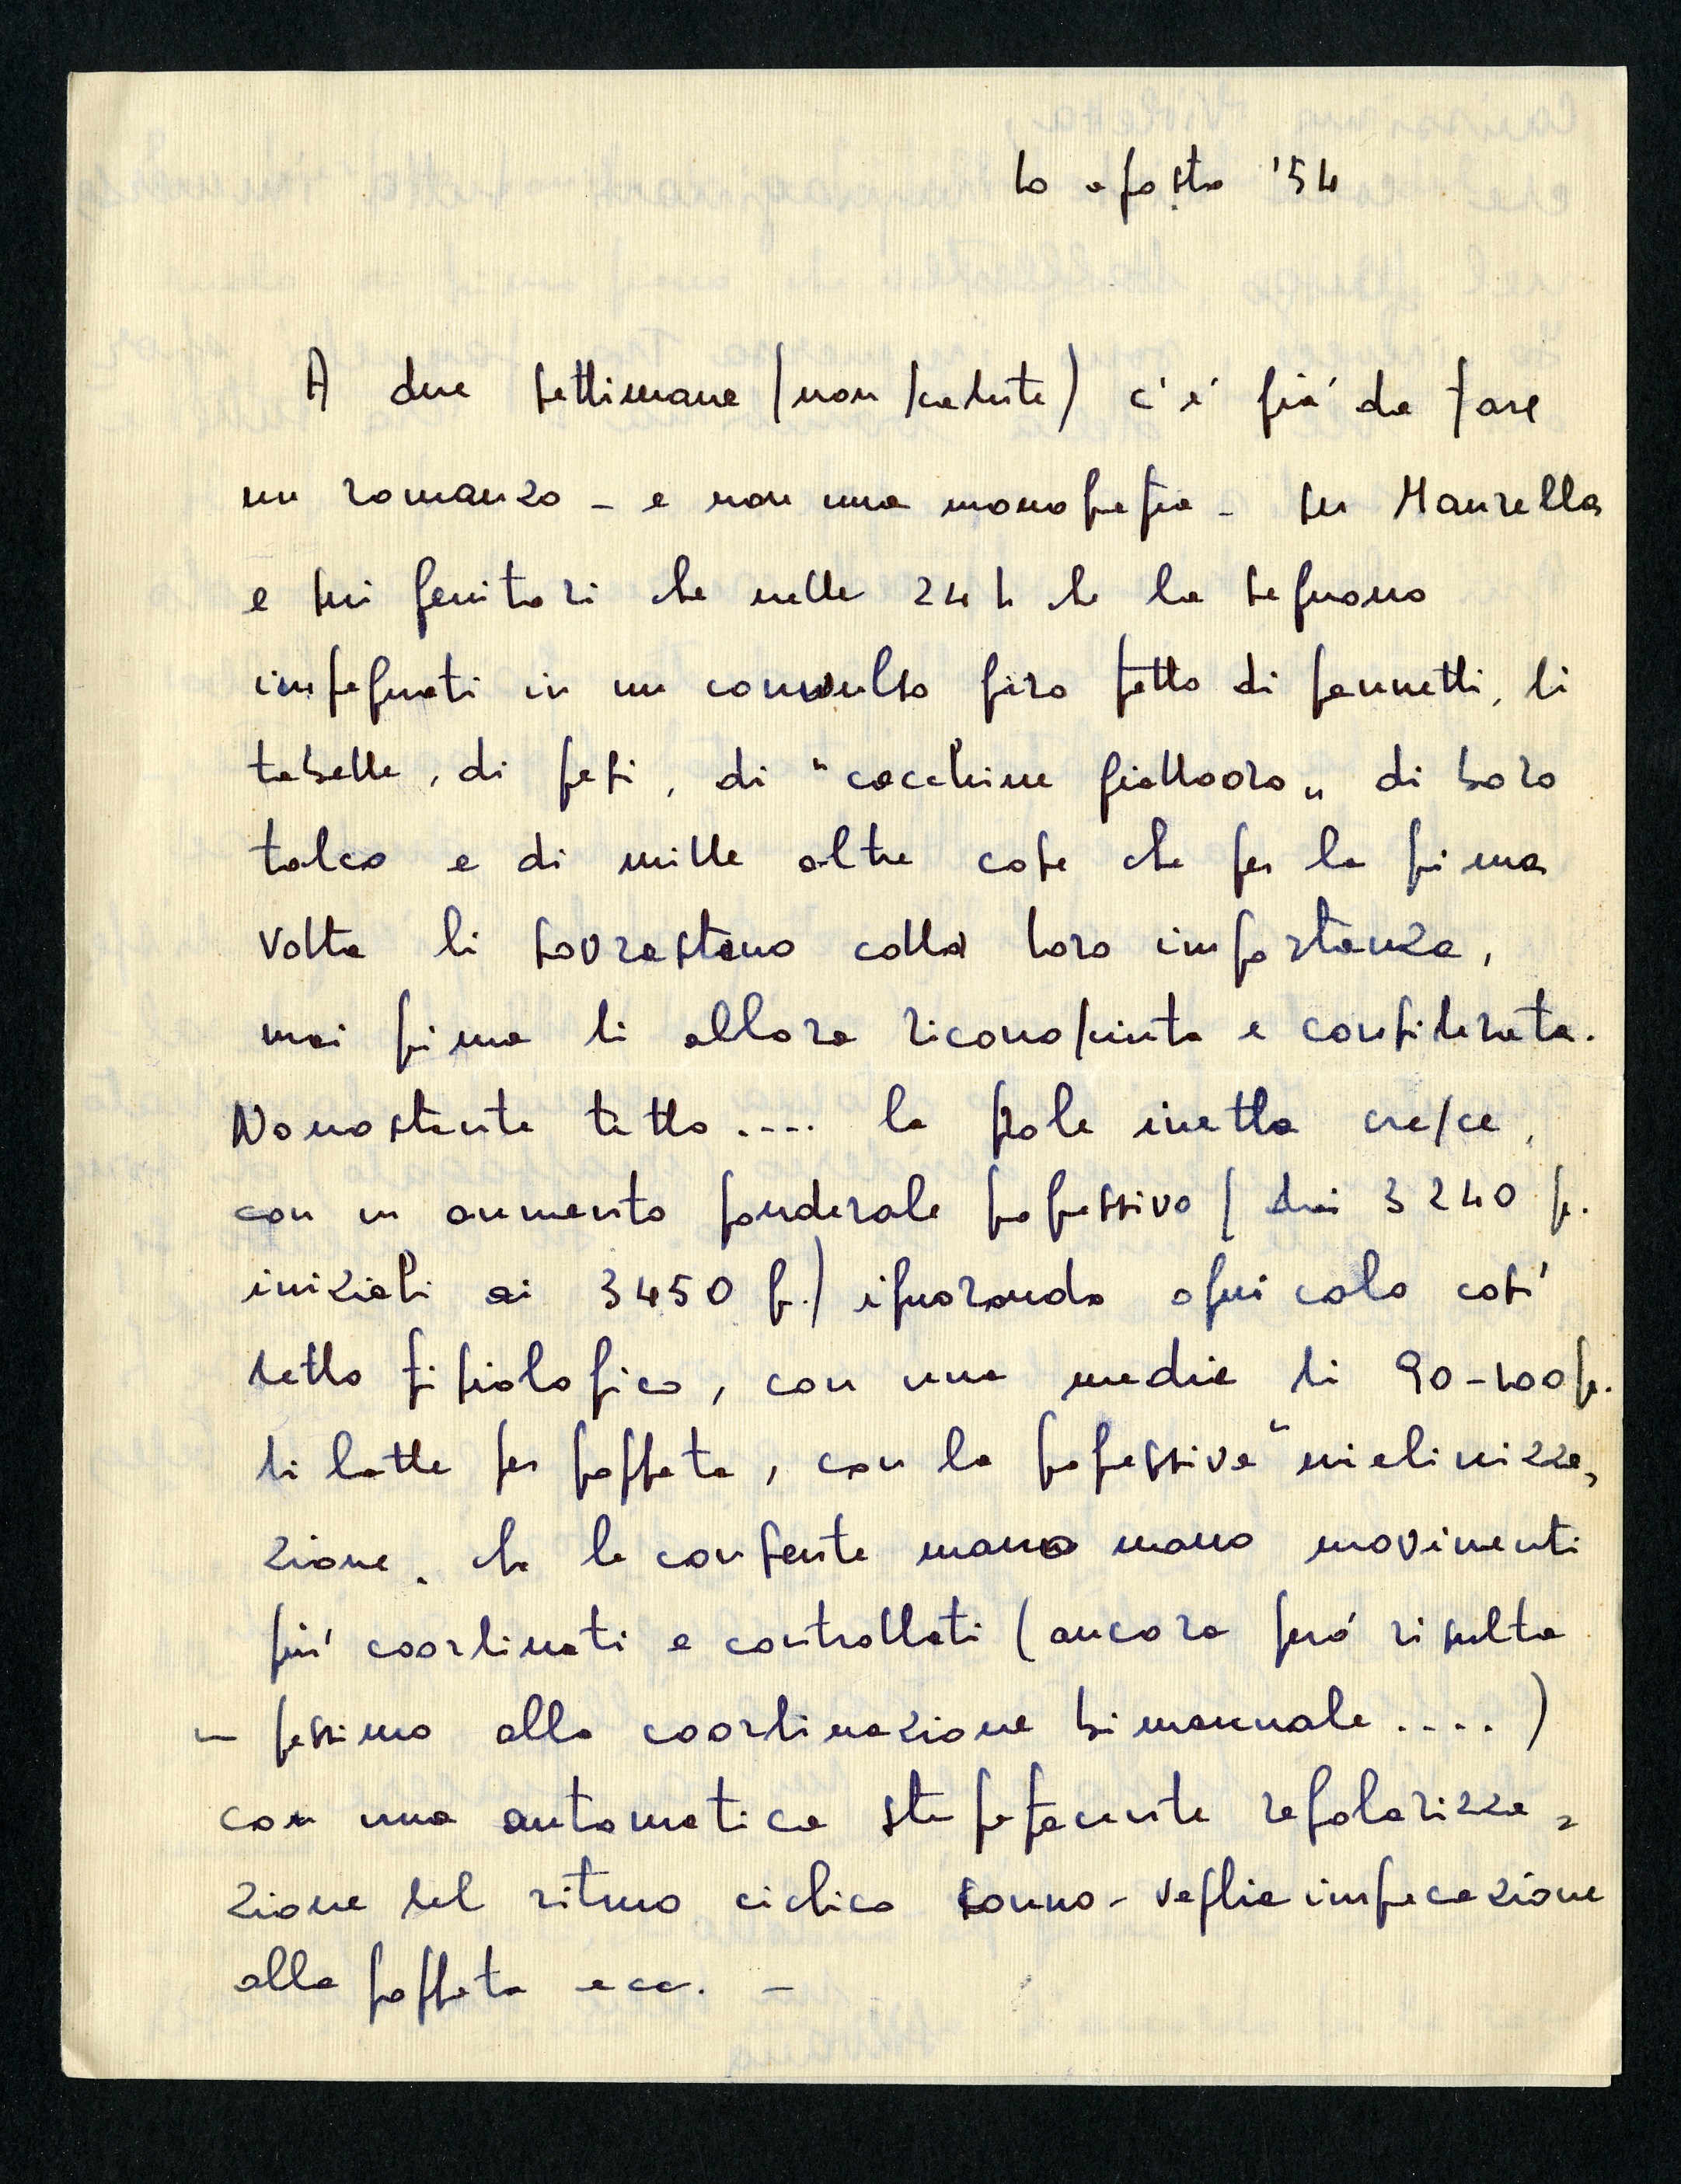 10 agosto '54
A due settimane (non scadute) c'è già da fare
un romanzo - e non una monografia - su Maurella
e sui genitori che nelle 24 h che la seguono
impegnati in un convulso giro fatto di pannetti, di
tabelle, di pesi, di "cacchine giallooro" di boro
talco e di mille altre cose che per la prima
volta li sovrastano colla loro importanza,
mai prima di allora riconosciuta e considerata.
Nonostante tutto .... la prole inetta cresce,
con un aumento ponderale progressivo (dai 3240 gr.
iniziali ai 3450 g.) ignorando ogni calo così
detto fisiologico, con una media di 90-100 gr.
di latte per poppata, con la progressiva "mielinizza,
zione" che le consente mano mano movimenti
più coordinati e controllati (ancora però risulta
- pessimo alla coordinazione bimanuale ....)
con una automatica stupefacente regolarizza,
zione del ritmo ciclico sonno-veglia impecazione
alla poppata ecc. -